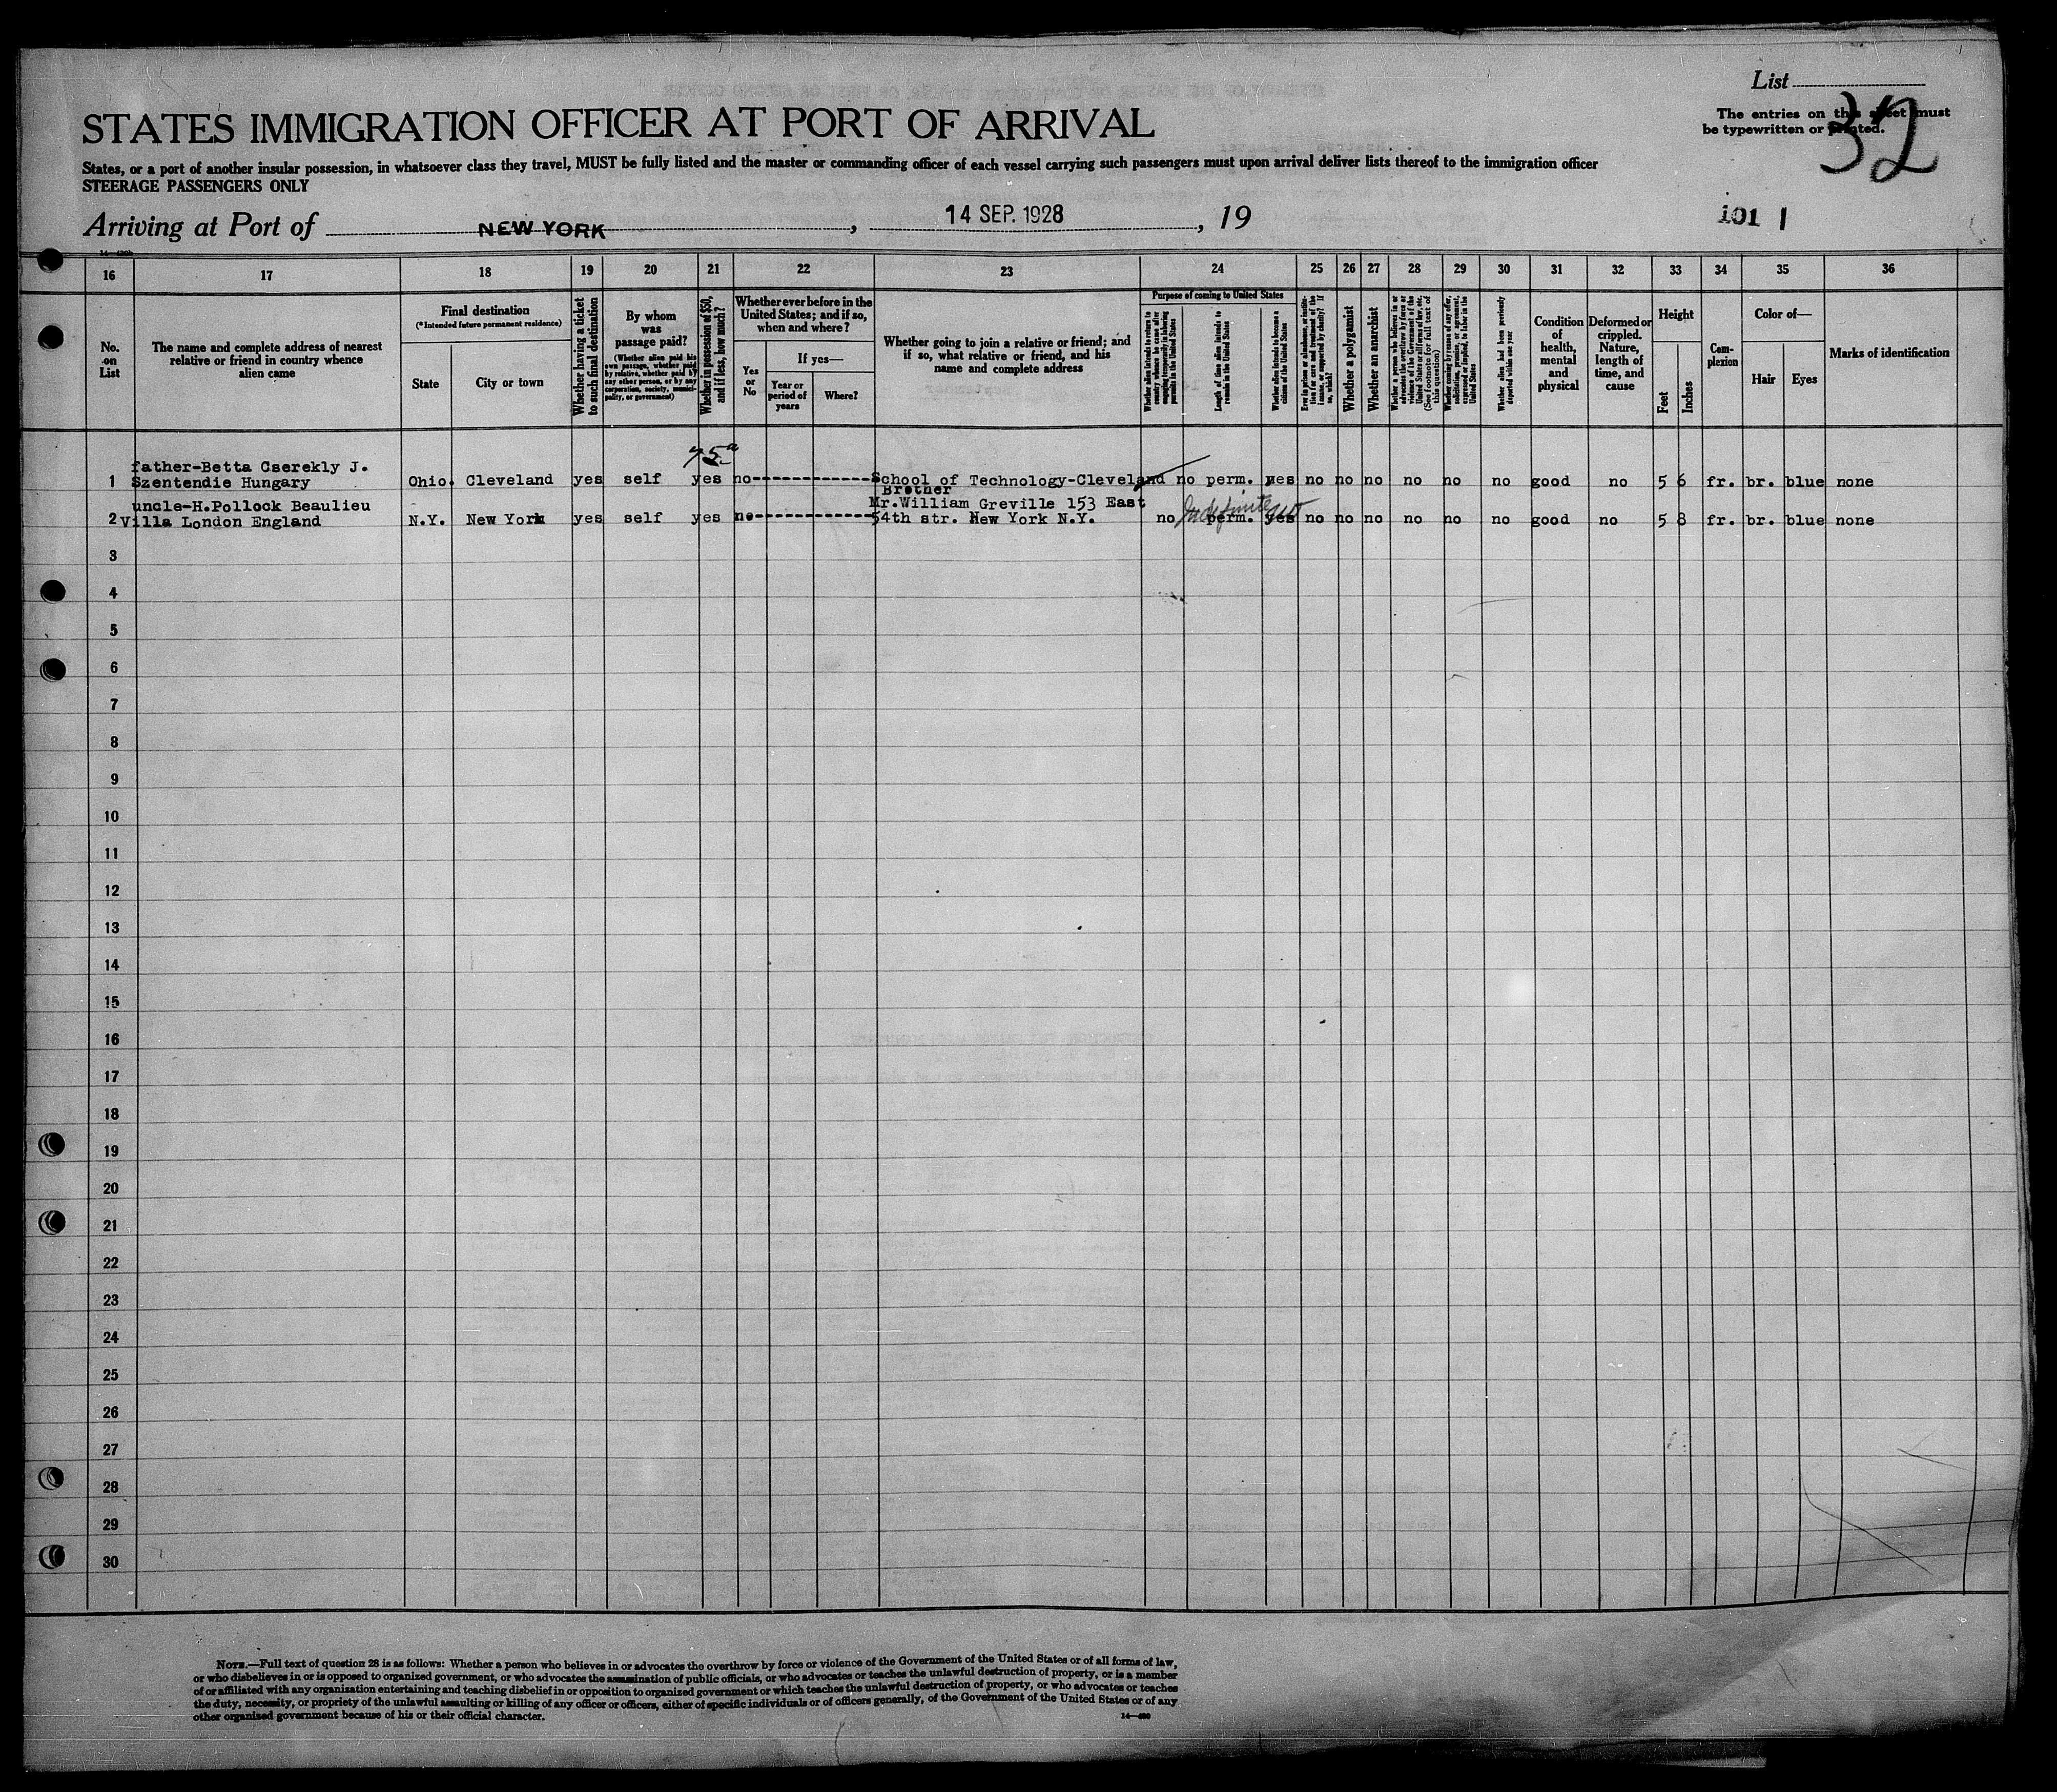 List
The entries on this sheet must
be typewritten or printed.
32
STATES IMMIGRATION OFFICER AT PORT OF ARRIVAL
States, or a port of another insular possession, in whatsoever class they travel, MUST be fully listed and the master or commanding officer of each vessel carrying such passengers must upon arrival deliver lists thereof to the immigration officer
STEERAGE PASSENGERS ONLY
Arriving at Port of NEW YORK, 14 SEP. 1928, 19
101 1
16 17 18 19 20 21 22 23 24 25 26 27 28 29 30 31 32 33 34 35 36
No. on List
The name and complete address of nearest relative or friend in country whence alien came
Final destination
(*Intended future permanent residence)
State
City or town
Whether having a ticket to such final destination
By whom was passage paid?
(Whether alien paid his own passage, whether paid by relative, whether paid by any other person, or by any corporation, society, municipality, or government)
Whether in possession of $50, and if less, how much?
Whether ever before in the United States; and if so, when and where?
Yes or No
If yes—
Year or period of years
Where?
Whether going to join a relative or friend; and if so, what relative or friend, and his name and complete address
Purpose of coming to United States
Whether alien intends to return to country whence he came after engaging temporarily in laboring pursuits in the United States
Length of time alien intends to remain in the United States
Whether alien intends to become a citizen of the United States
Ever in prison or almshouse, or institution for care and treatment of the insane, or supported by charity? If so, which?
Whether a polygamist
Whether an anarchist
Whether a person who believes in or advocates the overthrow by force or violence of the Government of the United States or all forms of law, etc. (See footnote for full text of this question)
Whether coming by reason of any offer, solicitation, promise, or agreement, expressed or implied, to labor in the United States
Whether alien had been previously deported within one year
Condition of health, mental and physical
Deformed or crippled. Nature, length of time, and cause
Height
Feet
Inches
Complexion
Color of—
Hair
Eyes
Marks of identification
75
father-Betta Cserekly J.
1 Szentendie Hungary Ohio. Cleveland yes self yes no School of Technology-Cleveland no perm. yes no no no no no no good no 5 6 fr. br. blue none
Brother
uncle-H.Pollock Beaulieu Mr.William Greville 153 East
2 Villa London England N.Y. New York yes self yes no 54th str. New York N.Y. no perm. yes no no no no no no good no 5 8 fr. br. blue none
Indefinite no
3
4
5
6
7
8
9
10
11
12
13
14
15
16
17
18
19
20
21
22
23
24
25
26
27
28
29
30
NOTE.—Full text of question 28 is as follows: Whether a person who believes in or advocates the overthrow by force or violence of the Government of the United States or of all forms of law,
or who disbelieves in or is opposed to organized government, or who advocates the assassination of public officials, or who advocates or teaches the unlawful destruction of property, or is a member
of or affiliated with any organization entertaining and teaching disbelief in or opposition to organized government or which teaches the unlawful destruction of property, or who advocates or teaches
the duty, necessity, or propriety of the unlawful assaulting or killing of any officer or officers, either of specific individuals or of officers generally, of the Government of the United States or of any
other organized government because of his or their official character.